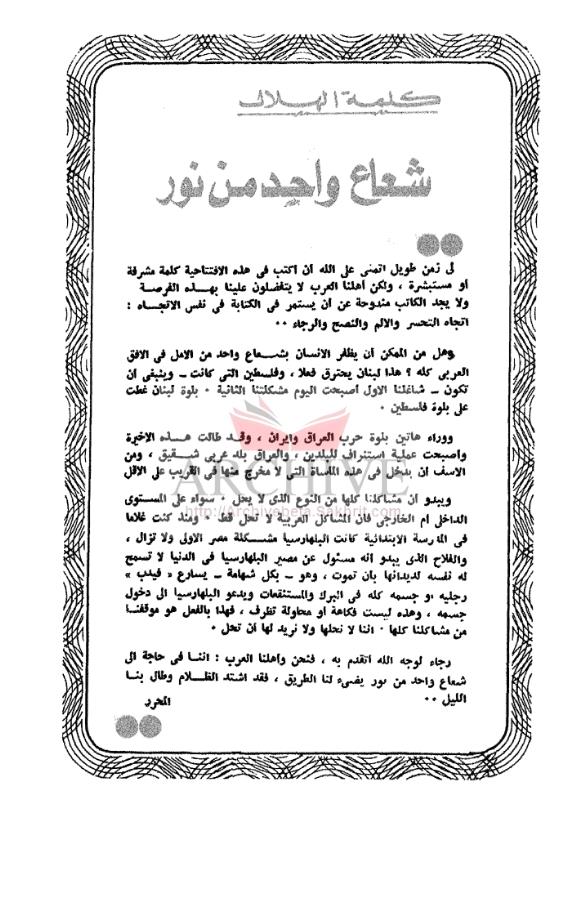 كلمة الهلال
شعاع واحد من نور
لى زمن طويل اتمنى على الله أن اكتب فى هذه الافتتاحية كلمة مشرقة
او مستبشرة ، ولكن أهلنا العرب لا يتفضلون علينا بهذه الفرصة
ولا يجد الكاتب مندوحة عن أن يستمر فى الكتابة فى نفس الاتجاه :
اتجاه التحسر والالم والنصح والرجاء ٠٠
وهل من الممكن أن يظفر الانسان بشعاع واحد من الامل فى الافق
العربى كله ؟ هذا لبنان يحترق فعلا ، وفلسطين التى كانت ــ وينبغى أن
تكون ــ شاغلنا الاول أصبحت اليوم مشكلتنا الثانية ٠ بلوة لبنان غطت
على بلوة فلسطين ٠
ووراء هاتين بلوة حرب العراق وايران ، وقد طالت هذه الاخيرة
وأصبحت عملية استنزاف للبلدين ، والعراق بلد عربى شقيق ، ومن
الاسف أن يدخل فى هذه المأساة التى لا مخرج منها فى القريب على الاقل
ويبدو أن مشاكلنا كلها من النوع الذى لا يحل ٠ سواء على المستوى
الداخلى ام الخارجى فان المشاكل العربية لا تحل قط ٠ ومنذ كنت غلاما
فى المدرسة الابتدائية كانت البلهارسيا مشكلة مصر الاولى ولا تزال ،
والفلاح الذى يبدو أنه مسئول عن مصير البلهارسيا فى الدنيا لا تسمح
له نفسه لديدانها بأن تموت ، وهو ــ بكل شهامة ــ يسارع « فيدب »
رجليه او جسمه كله فى البرك والمستنقعات ويدعو البلهارسيا الى دخول
جسمه ، وهذه ليست فكاهة او محاولة تظرف ، فهذا بالفعل هو موقفنا
من مشاكلنا كلها ٠ اننا لا نحلها ولا نريد لها أن تحل ٠
رجاء لوجه الله اتقدم به ، فنحن وأهلنا العرب : اننا فى حاجة الى
شعاع واحد من نور يضىء لنا الطريق ، فقد اشتد الظلام وطال بنا
الليل ٠٠
المحرر
ARCHIVE
http://Archivebeta.Sakhrit.com